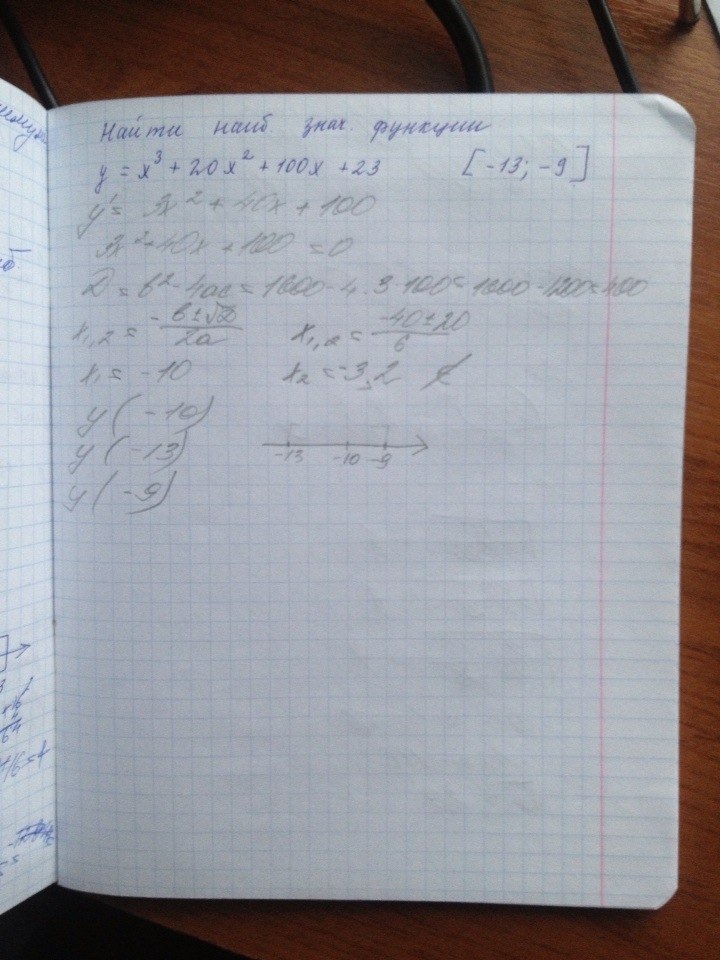 Найти наиб знач. функции
y = x³ + 20x² + 100x + 23 [-13; -9]
y' = 3x² + 40x + 100
3x² + 40x + 100 = 0
D = b² - 4ac = 1600 - 4 · 3 · 100 = 1600 - 1200 = 400
x₁,₂ = -b ± √D / 2a x₁,₂ = -40 ± 20 / 6
x₁ = -10 x₂ = -3,2 ∉
y(-10)
y(-13) -13 -10 -9
y(-9)